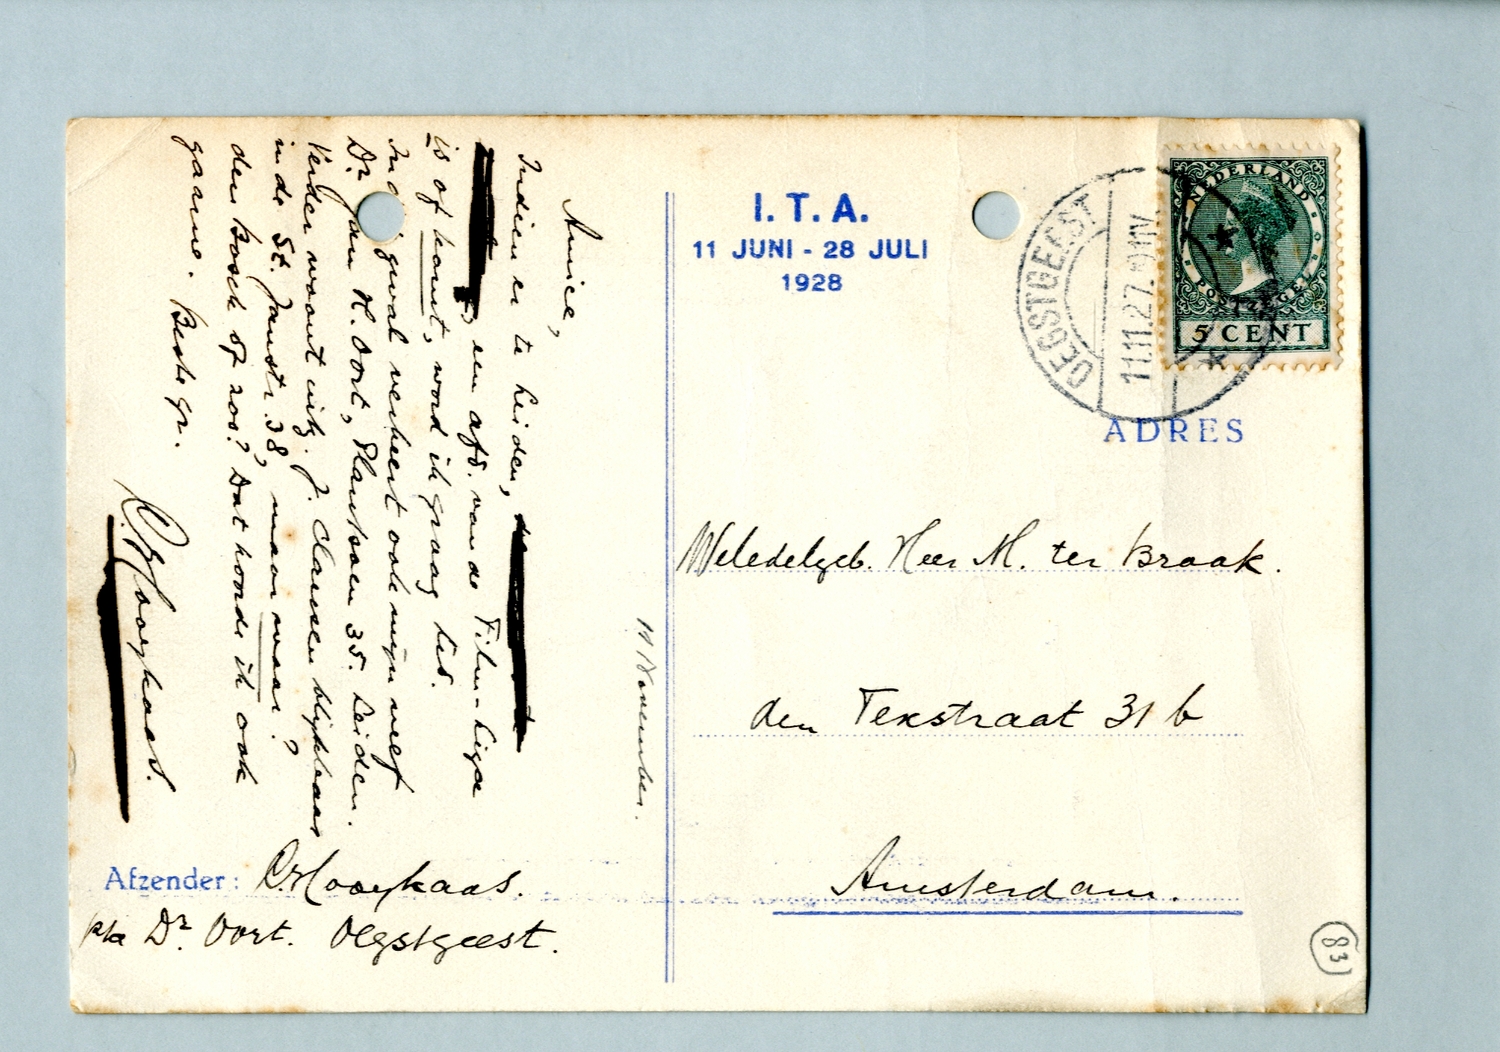 Amice,
Indien er te Leiden,
een afd. van de Film-Liga
is of komt, word ik graag lid.
In geval verkeert ook mijn neef
Dr Jan H. Oort, Plantsoen 35. Leiden.
Verder woont
in de St. Janstr. 38, maar waar?
den Bosch of zoo? Dat hoorde ik ook
gaarne. Beste gr.
R. Hooykaas.
11 November.
Afzender: R. Hooykaas.
p/a Dr Oort. Oegstgeest.
I. T. A.
11 JUNI - 28 JULI
1928
OEGSTGEEST
11.11.27.
NEDERLAND
POSTZEGEL
5 CENT
ADRES
Weledelgeb. Heer M. ter Braak.
den Texstraat 31 b
Amsterdam.
83